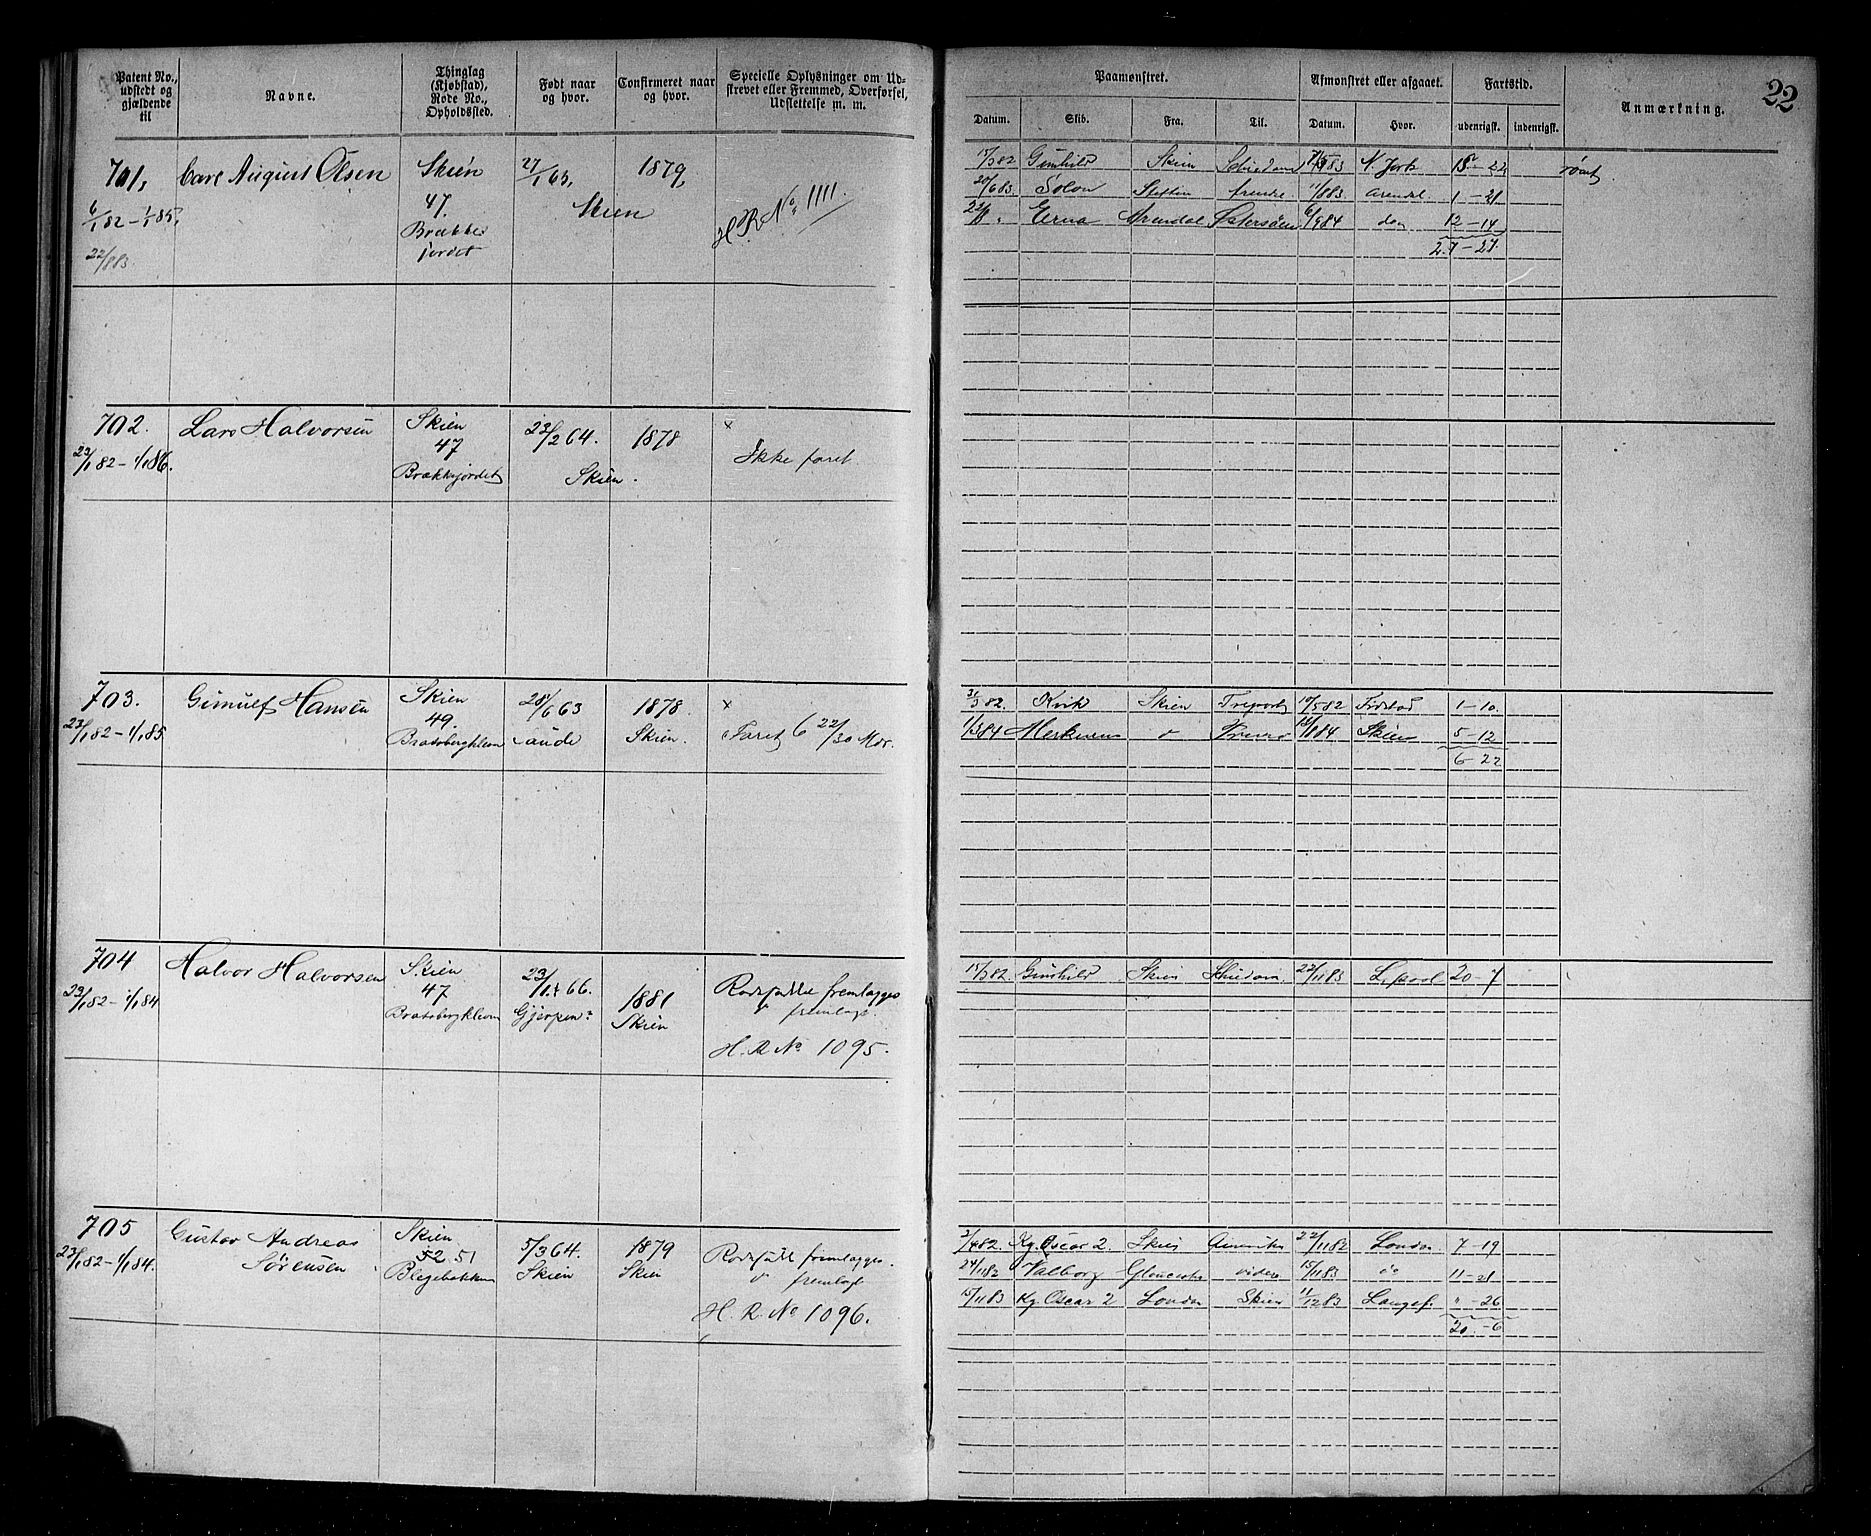 Patent No., udstedt og gjældende til
Navne.
Thinglag (Kjøbstad), Rode No., Opholdssted.
Født naar og hvor.
Confirmeret naar og hvor.
Specielle Oplysninger om Udstrevet eller Fremmed, Overførsel, Udslettelse m. m.
Paamønstret.
Datum. Skib. Fra. Til.
Afmønstret eller afgaaet.
Datum. Hvor.
Fartstid.
udenrigsk. indenrigsk.
Anmærkning.
22
701, Carl August Olsen Skien 27/1 63, 1879,
6/1 82 – 1/1 85, 47. Skien H R No. 1111.
22/8 83. Brække
jordet
15/3 82 Gunhild Skien 83 N. York 15 – 22
20/6 83. Solon Stettin 11/8 83 Arendal. 1 – 21
Erna Arendal Østersøen 6/9 84 do 12 – 14
27 – 27.
702. Lars Halvorsen Skien 23/2 64. 1878 x
23/1 82 – 1/1 86. 47 Skien. Ikke faret
Brækkejordet
703. Gunulf Hansen Skien 28/6 63 1878 x
23/1 82 – 1/1 85 49. Skien. Faret 6 22/30 Mdr.
Bratsbergkleven
31/3 82. Kvik Skien Treport 17/5 82 1 – 10.
1/3 84 Merkurius 84 Skien 5 – 12
6 – 22
704 Halvor Halvorsen Skien 23/1 66. 1881 fremlægges
23/1 82 – 1/1 84 47 Gjerpen Skien fremlagt.
Bratsbergkleven H. R. No 1095.
15/3 82. Gunhild Skien 22/11 83 L.pool 20 – 7
705 Gustav Andreas Skien 5/3 64. 1879 fremlægges.
23/1 82 – 1/1 84. Sørensen 52 51 Skien Skien fremlagt
Blegebakken H. R. No 1096.
3/4 82. Kg. Oscar 2. Skien 22/11 82 London 7 – 19
24/11 82 Valborg videre 15/11 83 do 11 – 21
15/11 83 Kg. Oscar 2 London Skien 11/12 83 Langes. " – 26
20. – 6